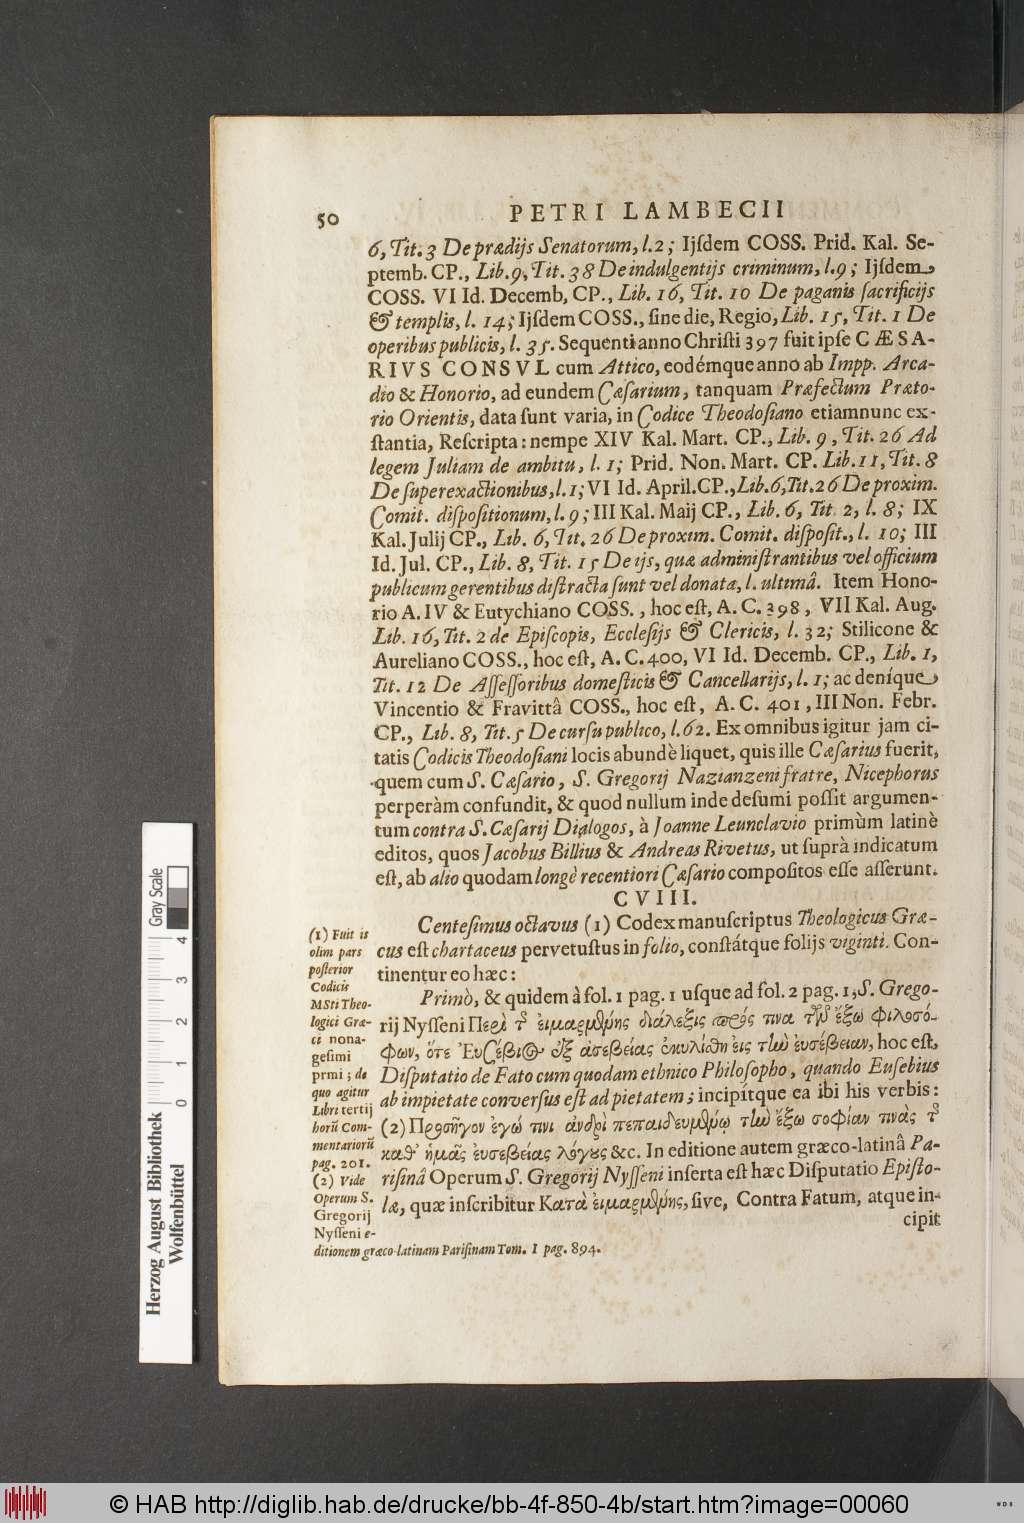 50 PETRI LAMBECII
6, Tit. 3 De prædijs Senatorum, l. 2; Ijſdem COSS. Prid. Kal. Se-
ptemb. CP., Lib. 9, Tit. 38 De indulgentijs criminum, l. 9; Ijſdem
COSS. VI Id. Decemb, CP., Lib. 16, Tit. 10 De paganis ſacrificijs
& templis, l. 14; Ijſdem COSS., ſine die, Regio, Lib. 15, Tit. 1 De
operibus publicis, l. 35. Sequenti anno Chriſti 397 fuit ipſe CÆSA-
RIVS CONSVL cum Attico, eodémque anno ab Impp. Arca-
dio & Honorio, ad eundem Cæſarium, tanquam Præfectum Præto-
rio Orientis, data ſunt varia, in Codice Theodoſiano etiamnunc ex-
ſtantia, Reſcripta: nempe XIV Kal. Mart. CP., Lib. 9, Tit. 26 Ad
legem Juliam de ambitu, l. 1; Prid. Non. Mart. CP. Lib. 11, Tit. 8
De ſuperexactionibus, l. 1; VI Id. April. CP., Lib. 6, Tit. 26 De proxim.
Comit. diſpoſitionum, l. 9; III Kal. Maij CP., Lib. 6, Tit. 2, l. 8; IX
Kal. Julij CP., Lib. 6, Tit. 26 De proxim. Comit. diſpoſit., l. 10; III
Id. Jul. CP., Lib. 8, Tit. 15 De ijs, quæ adminiſtrantibus vel officium
publicum gerentibus diſtracta ſunt vel donata, l. ultimâ. Item Hono-
rio A. IV & Eutychiano COSS., hoc eſt, A. C. 398, VII Kal. Aug.
Lib. 16, Tit. 2 de Epiſcopis, Eccleſijs & Clericis, l. 32; Stilicone &
Aureliano COSS., hoc eſt, A. C. 400, VI Id. Decemb. CP., Lib. 1,
Tit. 12 De Aſſeſſoribus domeſticis & Cancellarijs, l. 1; ac deníque
Vincentio & Fravittâ COSS., hoc eſt, A. C. 401, III Non. Febr.
CP., Lib. 8, Tit. 5 De curſu publico, l. 62. Ex omnibus igitur jam ci-
tatis Codicis Theodoſiani locis abundè liquet, quis ille Cæſarius fuerit,
quem cum S. Cæſario, S. Gregorij Nazianzeni fratre, Nicephorus
perperàm confundit, & quod nullum inde deſumi poſſit argumen-
tum contra S. Cæſarij Dialogos, à Joanne Leunclavio primùm latinè
editos, quos Jacobus Billius & Andreas Rivetus, ut ſuprà indicatum
eſt, ab alio quodam longè recentiori Cæſario compoſitos eſſe aſſerunt.
CVIII.
Centeſimus octavus (1) Codex manuſcriptus Theologicus Græ-
cus eſt chartaceus pervetuſtus in folio, conſtátque folijs viginti. Con-
tinentur eo hæc:
Primò, & quidem à fol. 1 pag. 1 uſque ad fol. 2 pag. 1, S. Grego-
rij Nyſſeni Περὶ τ῀ εἱμαρμένης διάλεξις πρός τινα τῶν ἔξω φιλοσό-
φων, ὅτε Ἐυσέβιος ἐξ ἀσεβείας ἐκυλίσθη εἰς τὴν ἐυσέβειαν, hoc eſt,
Diſputatio de Fato cum quodam ethnico Philoſopho, quando Euſebius
ab impietate converſus eſt ad pietatem; incipítque ea ibi his verbis:
(2) Προσῆγον ἐγώ τινι ἀνδρὶ πεπαιδευμένῳ τὴν ἔξω σοφίαν τινὰς τ῀
καθ' ἡμᾶς ἐυσεβείας λόγους &c. In editione autem græco-latinâ Pa-
riſinâ Operum S. Gregorij Nyſſeni inſerta eſt hæc Diſputatio Epiſto-
læ, quæ inſcribitur Κατὰ εἱμαρμένης, ſive, Contra Fatum, atque in-
cipit
(1) Fuit is
olim pars
poſterior
Codicis
MSti Theo-
logici Græ-
ci nona-
geſimi
prmi; de
quo agitur
Libri tertij
horũ Com-
mentariorũ
pag. 201.
(2) Vide
Operum S.
Gregorij
Nyſſeni e-
ditionem græco-latinam Pariſinam Tom. I pag. 894.
Herzog August Bibliothek
Wolfenbüttel
Gray Scale
0 1 2 3 4
© HAB http://diglib.hab.de/drucke/bb-4f-850-4b/start.htm?image=00060